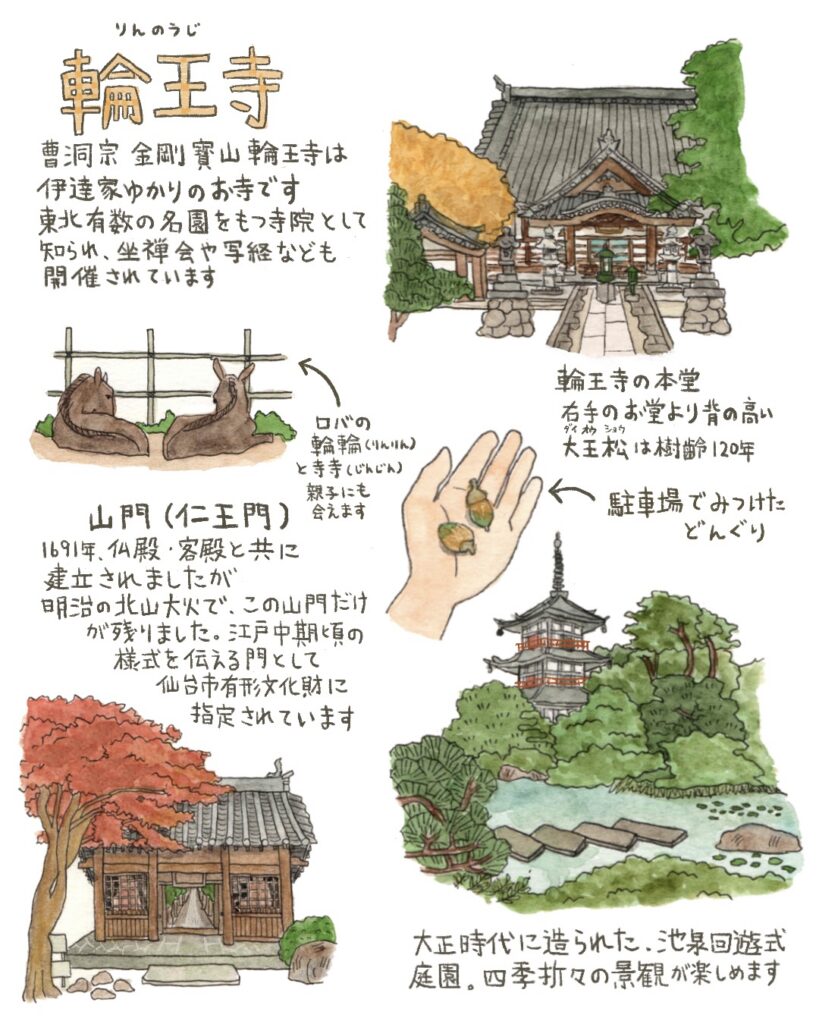 りんのうじ
輪王寺
曹洞宗 金剛寶山 輪王寺は
伊達家ゆかりのお寺です
東北有数の名園をもつ寺院として
知られ、坐禅会や写経なども
開催されています
輪王寺の本堂
右手のお堂より背の高い
ダイオウ ショウ
大王松は樹齢120年
ロバの
輪輪(りんりん)
と寺寺(じんじん)
親子にも
会えます
駐車場でみつけた
どんぐり
山門(仁王門)
1691年、仏殿・客殿と共に
建立されましたが
明治の北山大火で、この山門だけ
が残りました。江戸中期頃の
様式を伝える門として
仙台市有形文化財に
指定されています
大正時代に造られた、池泉回遊式
庭園。四季折々の景観が楽しめます